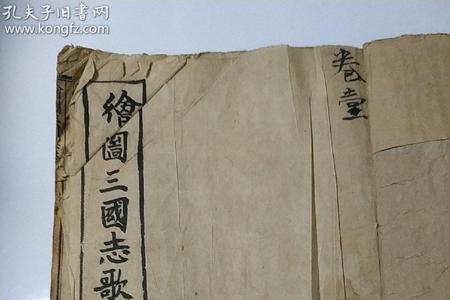 孔夫子旧书网
www.kongfz.com
卷壹
繪圖三國志歌